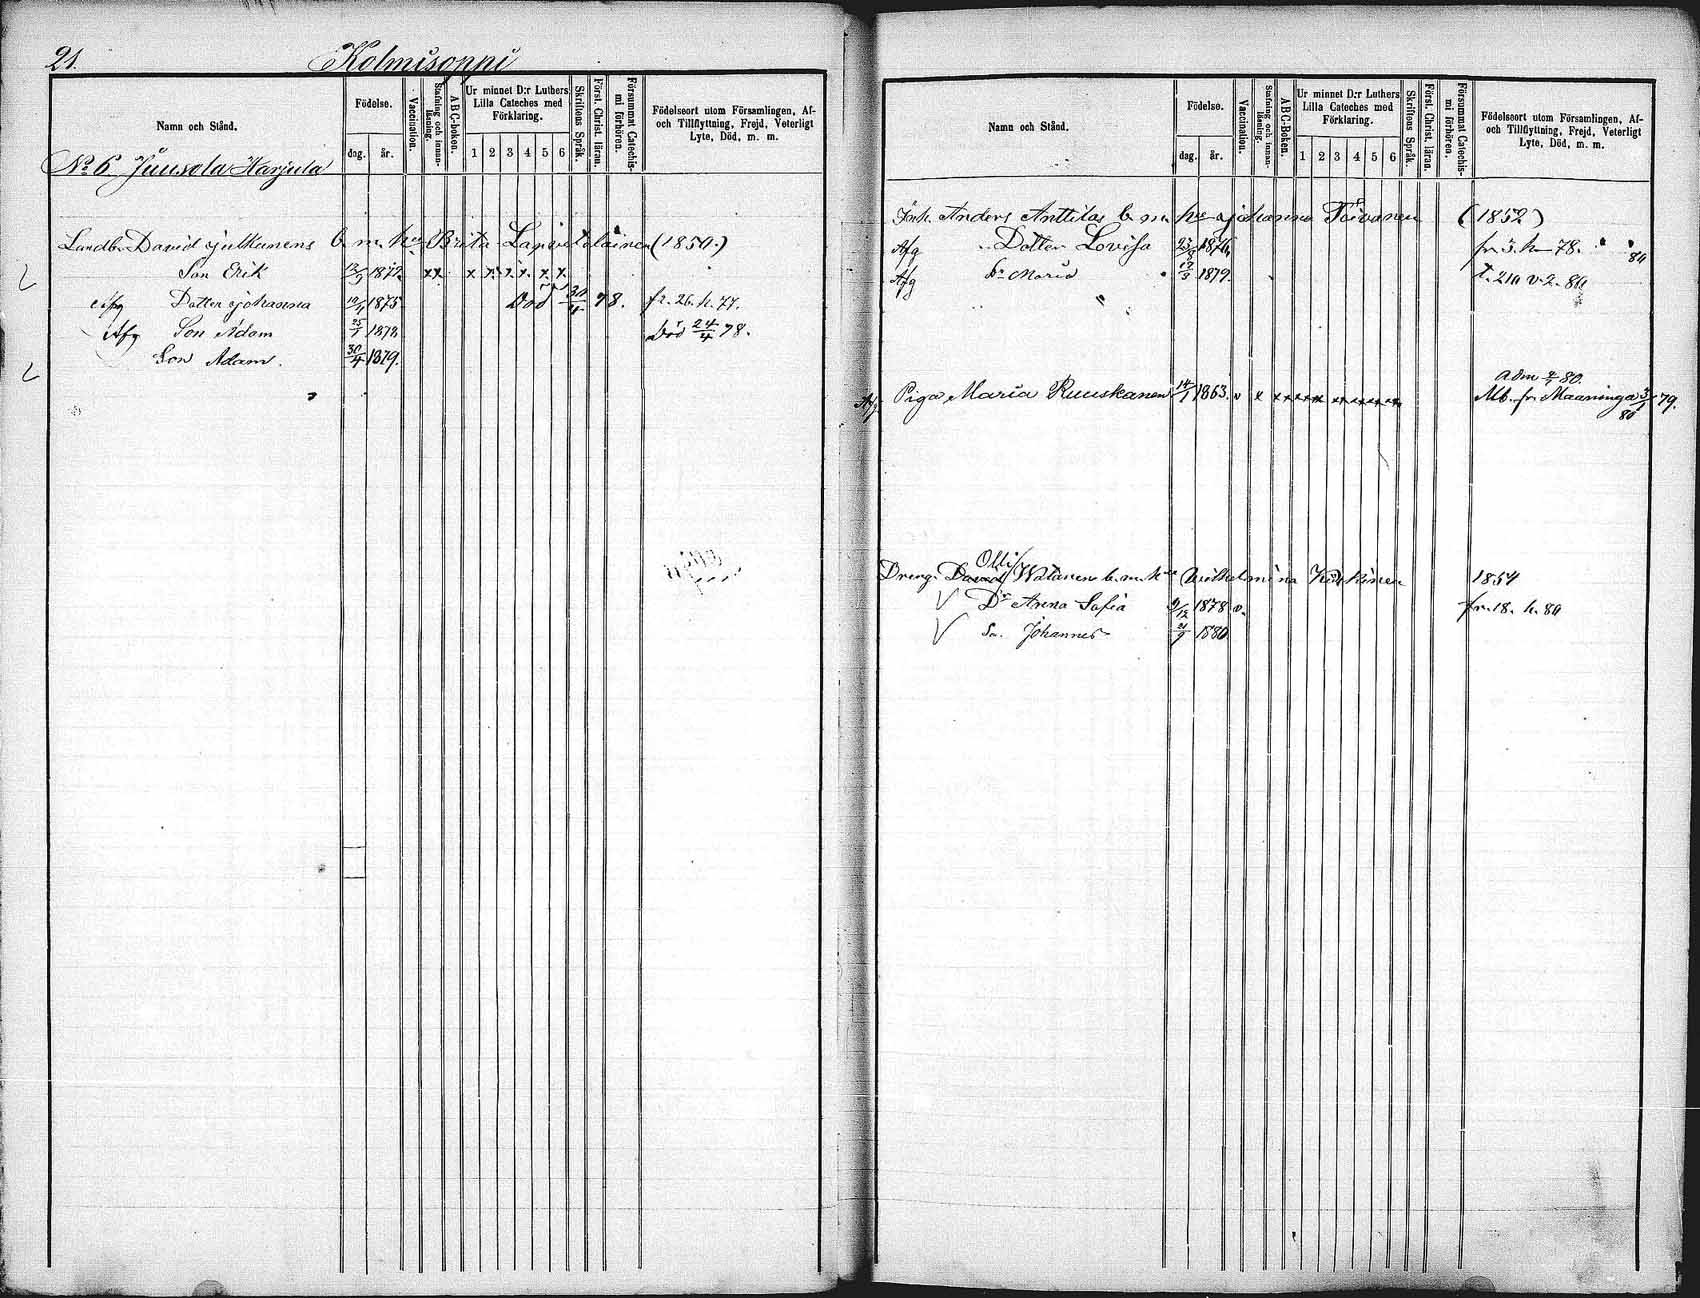 21.
Kolmisoppi
Namn och Stånd.
Födelse.
dag. år.
Vaccination.
Stafning och innanläsning.
A B C-boken.
Ur minnet D:r Luthers Lilla Cateches med Förklaring.
1 2 3 4 5 6
Skriftens Språk.
Först. Christ. läran.
Försummat Catechismi förhören.
Födelseort utom Församlingen, Af- och Tillflyttning, Frejd, Veterligt Lyte, Död, m. m.
No 6 Juusola Harjula
Landb. David Julkunens b. m. h. Brita Lapvetelainen (1850.)
Son Erik 1872 x x x x x x x x
Afg Dotter Johanna 10/4 1875 Död 30/4 78. fr. 26. h. 77.
Afg Son Adam 25/1 1878 Död 24/4 78.
Son Adam. 30/4 1879.
Namn och Stånd.
Födelse.
dag. år.
Vaccination.
Stafning och innanläsning.
A B C-Boken.
Ur minnet D:r Luthers Lilla Cateches med Förklaring.
1 2 3 4 5 6
Skriftens Språk.
Först. Christ. läran.
Försummat Catechismi förhören.
Födelseort utom Församlingen, Af- och Tillflyttning, Frejd, Veterligt Lyte, Död, m. m.
Inh. Anders Anttilas b. m. h. Johanna Toivanen (1852)
Afg Dotter Lovisa 23/8 1876 fr. 3. h. 78. 80
Afg Dr Maria 1879. t. 210 v. 2. 80
adm 80.
Afg Piga Maria Ruuskanen 14/1 1863. v x x x x x x x x x x x Mb. fr. Maaninga 79.
80
Olli
Dreng. David Watanen b. m. h. Wilhelmina Koskinen 1854
Dr Anna Sofia 9/12 1878 v. fr. 18. h. 80
Sn. Johannes 21/9 1880